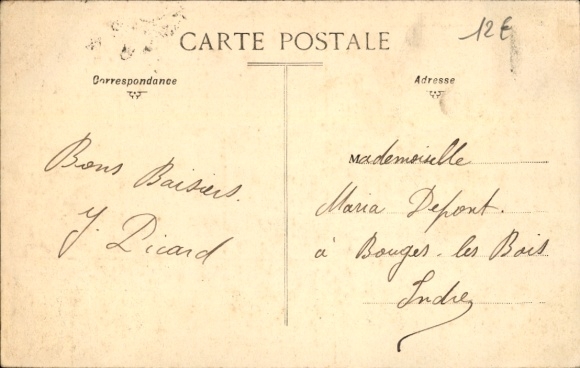 12€
CARTE POSTALE
Correspondance
Adresse
Bons Baisiers.
Y. Picard
Mademoiselle
Maria Depont.
à Bouges-les Bois
Indre